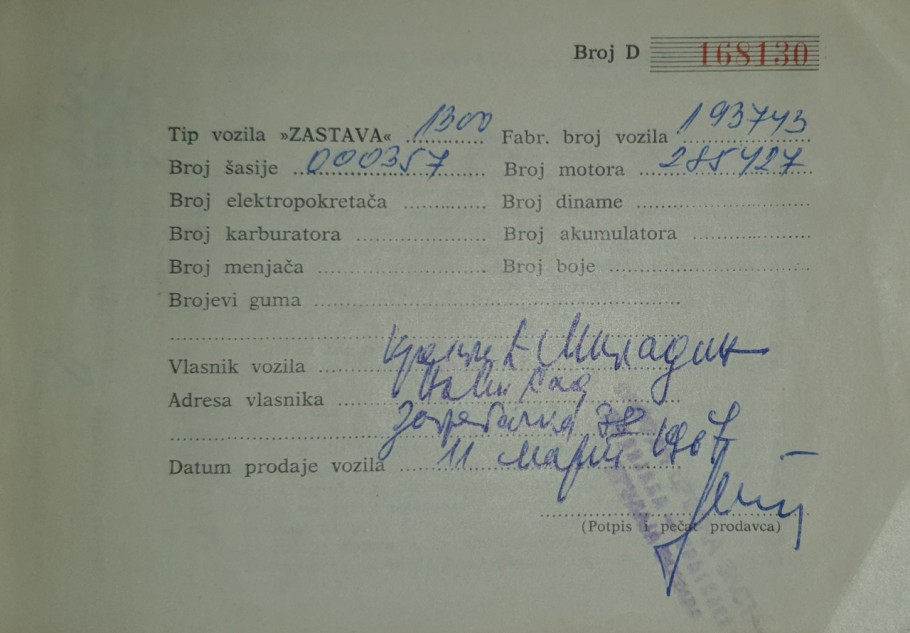 Broj D 168130
Tip vozila »ZASTAVA« 1300 Fabr. broj vozila 193743
Broj šasije 000357 Broj motora 285427
Broj elektropokretača Broj diname
Broj karburatora Broj akumulatora
Broj menjača Broj boje
Brojevi guma
Vlasnik vozila Миладин
Adresa vlasnika Нови Сад
Datum prodaje vozila 11 март 1967
(Potpis i pečat prodavca)